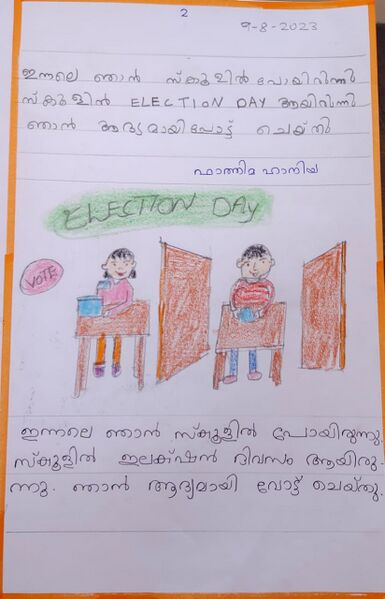 2
9-8-2023
ഇന്നലെ ഞാൻ സ്കൂളിൽ പോയിരിന്നു
സ്കൂളിൽ ELECTION DAY ആയിരിന്നു
ഞാൻ ആദ്യമായി പോട്ട് ചെയ്തു
ഫാത്തിമ ഹാനിയ
ELECTION DAY
VOTE
ഇന്നലെ ഞാൻ സ്കൂളിൽ പോയിരുന്നു.
സ്കൂളിൽ ഇലക്ഷൻ ദിവസം ആയിരു-
ന്നു. ഞാൻ ആദ്യമായി വോട്ട് ചെയ്തു.